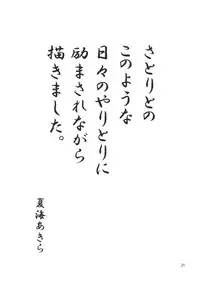 さとりとの
このような
日々のやりとりに
励まされながら
描きました。
夏海あきら